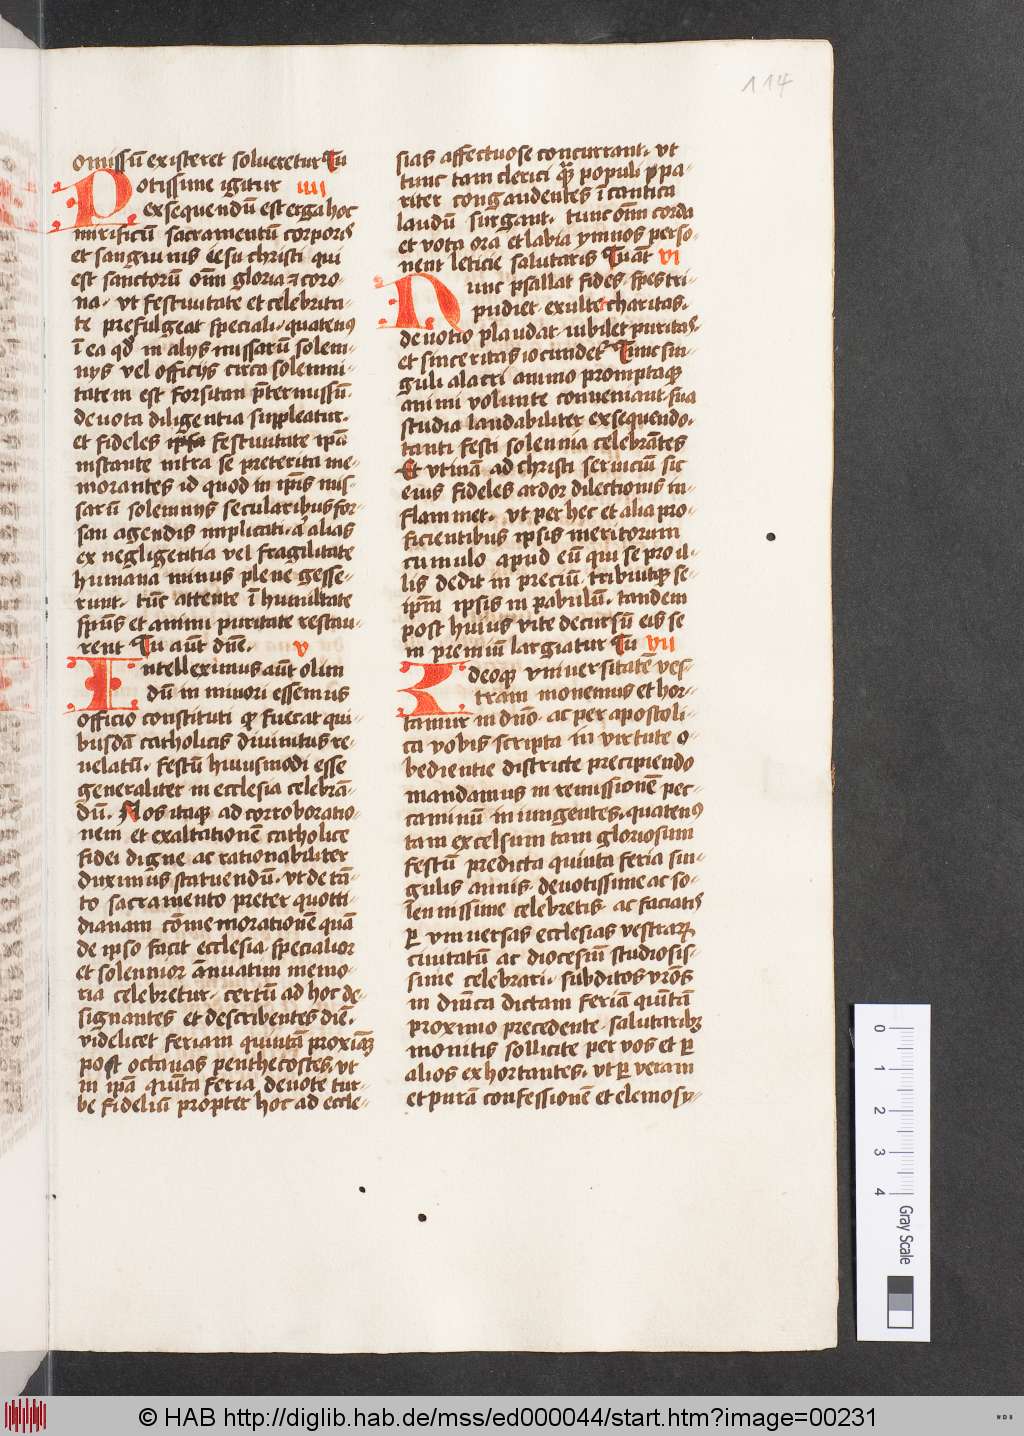 114
omissū existeret solueretur Tu
Potissime igitur iiii
exsequendū est erga hoc
mirificū sacramentū corporis
et sanguinis iesu christi qui
est sanctorū om̄ gloria et coro-
na. vt festiuitate et celebrita-
te prefulgeat speciali. quatenꝰ
ī ea qd̓ in alijs missarū solem-
nijs vel officijs circa solemni-
tatem est forsitan p̄termissū.
deuota diligentia suppleatur.
et fideles festiuitate ip̄a
instante intra se preterita me-
morantes id quod in ip̄is mis-
sarū solemnijs secularibus for-
san agendis implicati. a' alias
ex negligentia vel fragilitate
humana minus plene gesse-
runt. tūc attente ī humilitate
sp̄us et animi puritate restau-
rent Tu aūt dn̄e. v
Intelleximus aūt olim
dū in minori essemus
officio constituti qꝫ fuerat qui-
busdā catholicis diuinitus re-
uelatū. festū huiusmodi esse
generaliter in ecclesia celebrā-
dū. Nos itaqꝫ ad corroboratio-
nem et exaltationē catholice
fidei digne ac rationabiliter
duximus statuendū. vt de tā-
to sacramento preter quotti-
dianam cōmemorationē quā
de ipso facit ecclesia specialior
et solennior ānuatim memo-
ria celebretur. certū ad hoc de-
signantes et describentes diē.
videlicet feriam quintā proximā
post octauas penthecostes. vt
in ip̄a quīta feria deuote tur-
be fidelium propter hoc ad eccle-
sias affectuose concurrant. vt
tunc tam clerici qꝫ populi ꝓ pa-
riter congaudentes ī cantica
laudū surgant. tunc om̄ corda
et vota ora et labia ymnos perso-
nent leticie salutaris Tu aūt vi
Nunc psallat fides. spes tri-
pudiet. exultet charitas.
deuotio plaudat. iubilet puritas.
et sinceritas iocundetꝛ Tunc sin-
guli alacri animo promptaqꝫ
animi volunte conueniant. sua
studia laudabiliter exsequendo.
tanti festi solennia celebrātes
Et vtinā ad christi seruiciū sic
eius fideles ardor dilectionis in-
flammet. vt per hec et alia pro-
ficientibus ipsis meritorum
cumulo apud eū qui se pro il-
lis dedit in preciū. tribuitqꝫ se-
ip̄m ipsis in pabulū. tandem
post huius vite decursū eis se
in premiū largiatur Tu vii
Ideoqꝫ vniuersitatē ves-
tram monemus et hor-
tamur in dn̄o. ac per apostoli-
ca vobis scripta in virtute o-
bedientie districte precipiendo
mandamus in remissionē pec-
caminū iniungentes. quatenꝰ
tam excelsum tam gloriosum
festū predicta quinta feria sin-
gulis annis. deuotissime ac so-
lennissime celebretis. ac faciatis
ꝑ vniuersas ecclesias vestrarꝫ
ciuitatū ac diocesiū studiosis-
sime celebrari. subditos vr̄os
in dn̄ica dictam feriā quītā
proximo precedente. salutaribꝫ
monitis sollicite per vos et ꝑ
alios exhortantes. vt ꝑ veram
et purā confessionē et elemosy-
0 1 2 3 4 Gray Scale
© HAB http://diglib.hab.de/mss/ed000044/start.htm?image=00231